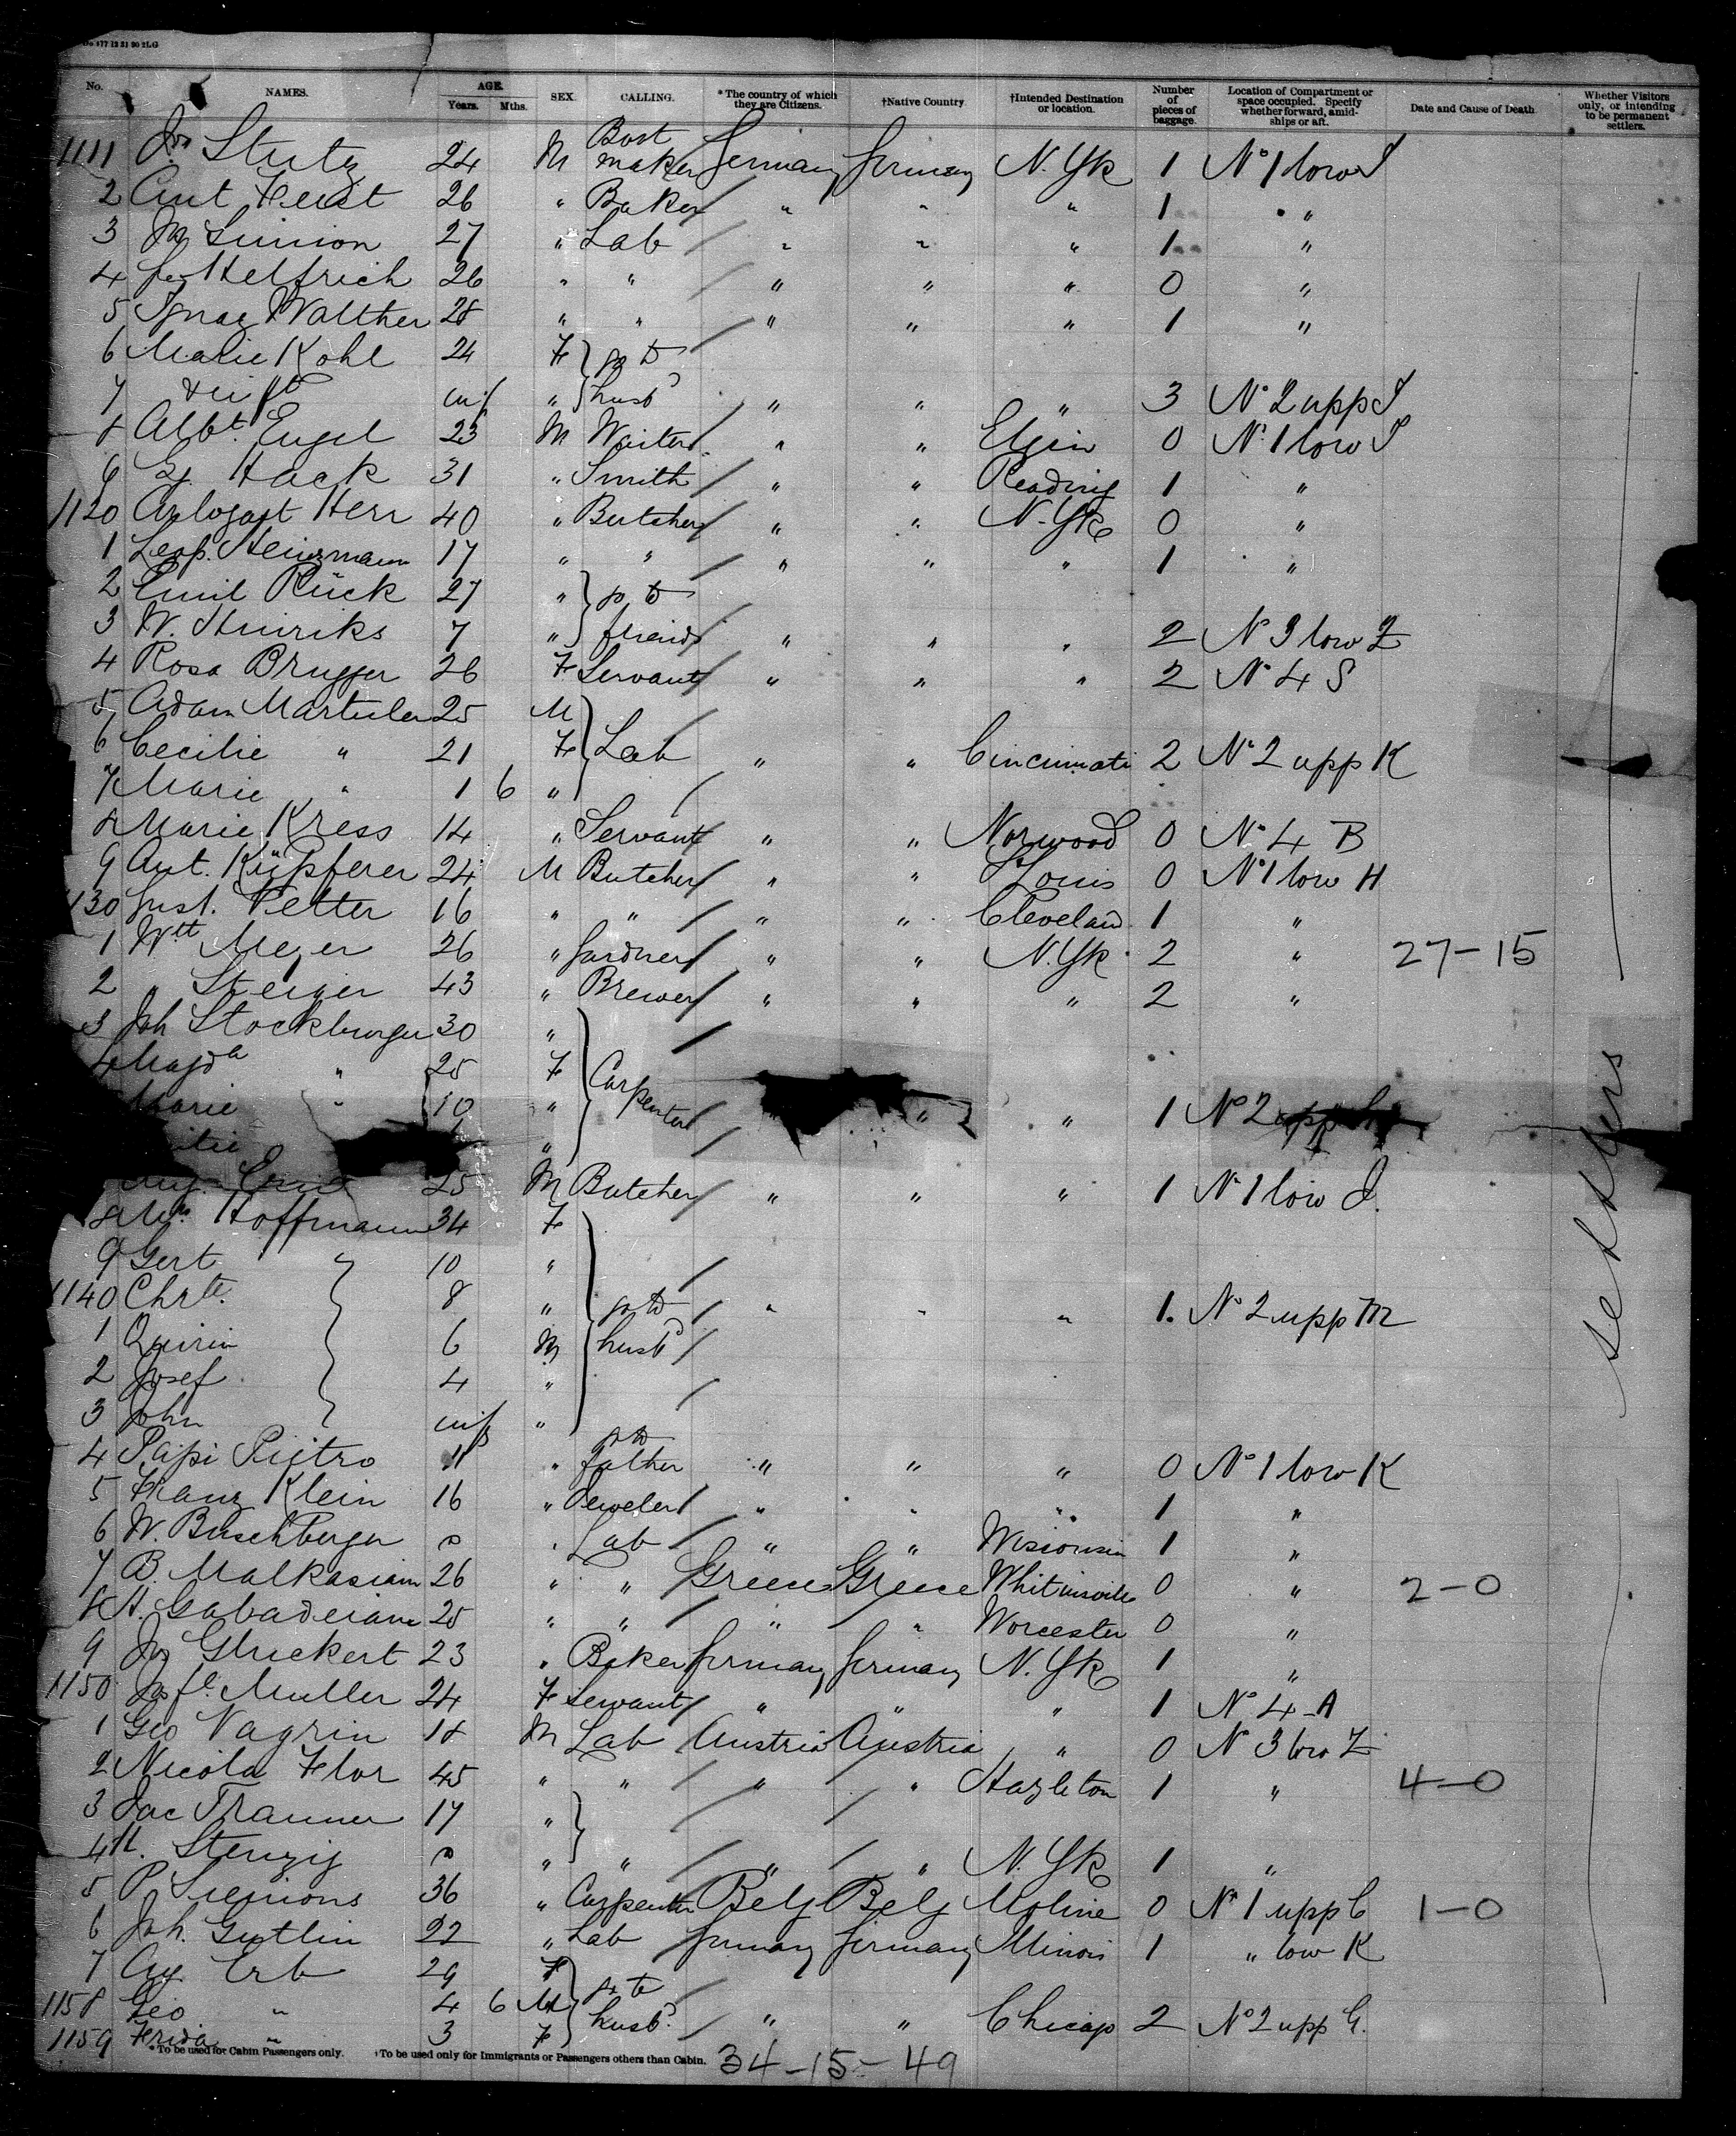 No. NAMES. AGE. Years. Mths. SEX. CALLING. *The country of which they are Citizens. †Native Country †Intended Destination or location. Number of pieces of baggage. Location of Compartment or space occupied. Specify whether forward, amidships or aft. Date and Cause of Death Whether Visitors only, or intending to be permanent settlers.
1111 Stutz 24 M maker Germany Germany N. Yk 1 No 1 low I
2 Ant 26 " Baker " " " 1 "
3 27 " Lab " " " 1 "
4 Helfrich 26 " " " " " 0 "
5 Ignaz Walther 28 " " " " " 1 "
6 Marie Kohl 24 F } go to
7 inf " } husbd " " " 3 No 2 upp I
8 Albt. Engel 23 M Waiter " " Elgin 0 No 1 low I
9 Hack 31 " Smith " " Reading 1 "
1120 Arbogast Herr 40 " Butcher " " N. Yk 0 "
1 Leop. Heinzmann 17 " " " " " 1 "
2 Emil Rück 27 " } go to
3 W. Hinriks 7 " } friends " " " 2 No 3 low Z
4 Rosa Brugger 26 F Servant " " " 2 No 4 S
5 Adam 25 M
6 Cecilie " 21 F } Lab " " Cincinnati 2 No 2 upp K
7 Marie " 1 6 "
8 Marie Kress 14 " Servant " " Norwood 0 No 4 B
9 Ant. Küpferer 24 M Butcher " " St Louis 0 No 1 low H
1130 Gust. Vetter 16 " " " " Cleveland 1 "
1 Meyer 26 " Gardner " " N. Yk 2 " 27-15
2 " Steiger 43 " Brewer " " " 2 "
3 Joh Stockburger 30 "
4 Magda " 25 F
Marie " 10 " } Carpenter " " 1 No 2 upp
"
25 M Butcher " " " 1 No 1 low I.
8 Hoffmann 34 F
9 Gert 10 "
1140 Chrte. 8 " go to " " " 1. No 2 upp M
1 Quirin 6 M husbd
2 Josef 4 "
3 John inf "
4 Papi Pietro 11 " go to father " " " 0 No 1 low K
5 Franz Klein 16 " Jeweler " " " 1 "
6 W. Buschberger " Lab " " Wisconsin 1 "
7 B. Malkasian 26 " " Greece Greece Whitinsville 0 " 2-0
8 25 " " " " Worcester 0 "
9 Jos Gluckert 23 " Baker Germany Germany N. Yk 1 "
1150 Josf. Muller 24 F Servant " " " 1 No 4 A
1 Geo Vagrin 18 M Lab Austria Austria " 0 No 3 low Z
2 Nicola Flor 45 " " " " Hazleton 1 " 4-0
3 Jac 17 "
4 H. Stenzig " " " " N. Yk 1 "
5 P. 36 " Carpenter Belg Belg Moline 0 No 1 upp C 1-0
6 Joh. Gutlin 22 " Lab Germany Germany 1 " low K
7 Erb 29 F
1158 Geo " 4 6 M } go to husbd. " " Chicago 2 No 2 upp G.
1159 Frida " 3 F
settlers
*To be used for Cabin Passengers only. †To be used only for Immigrants or Passengers others than Cabin. 34-15-49